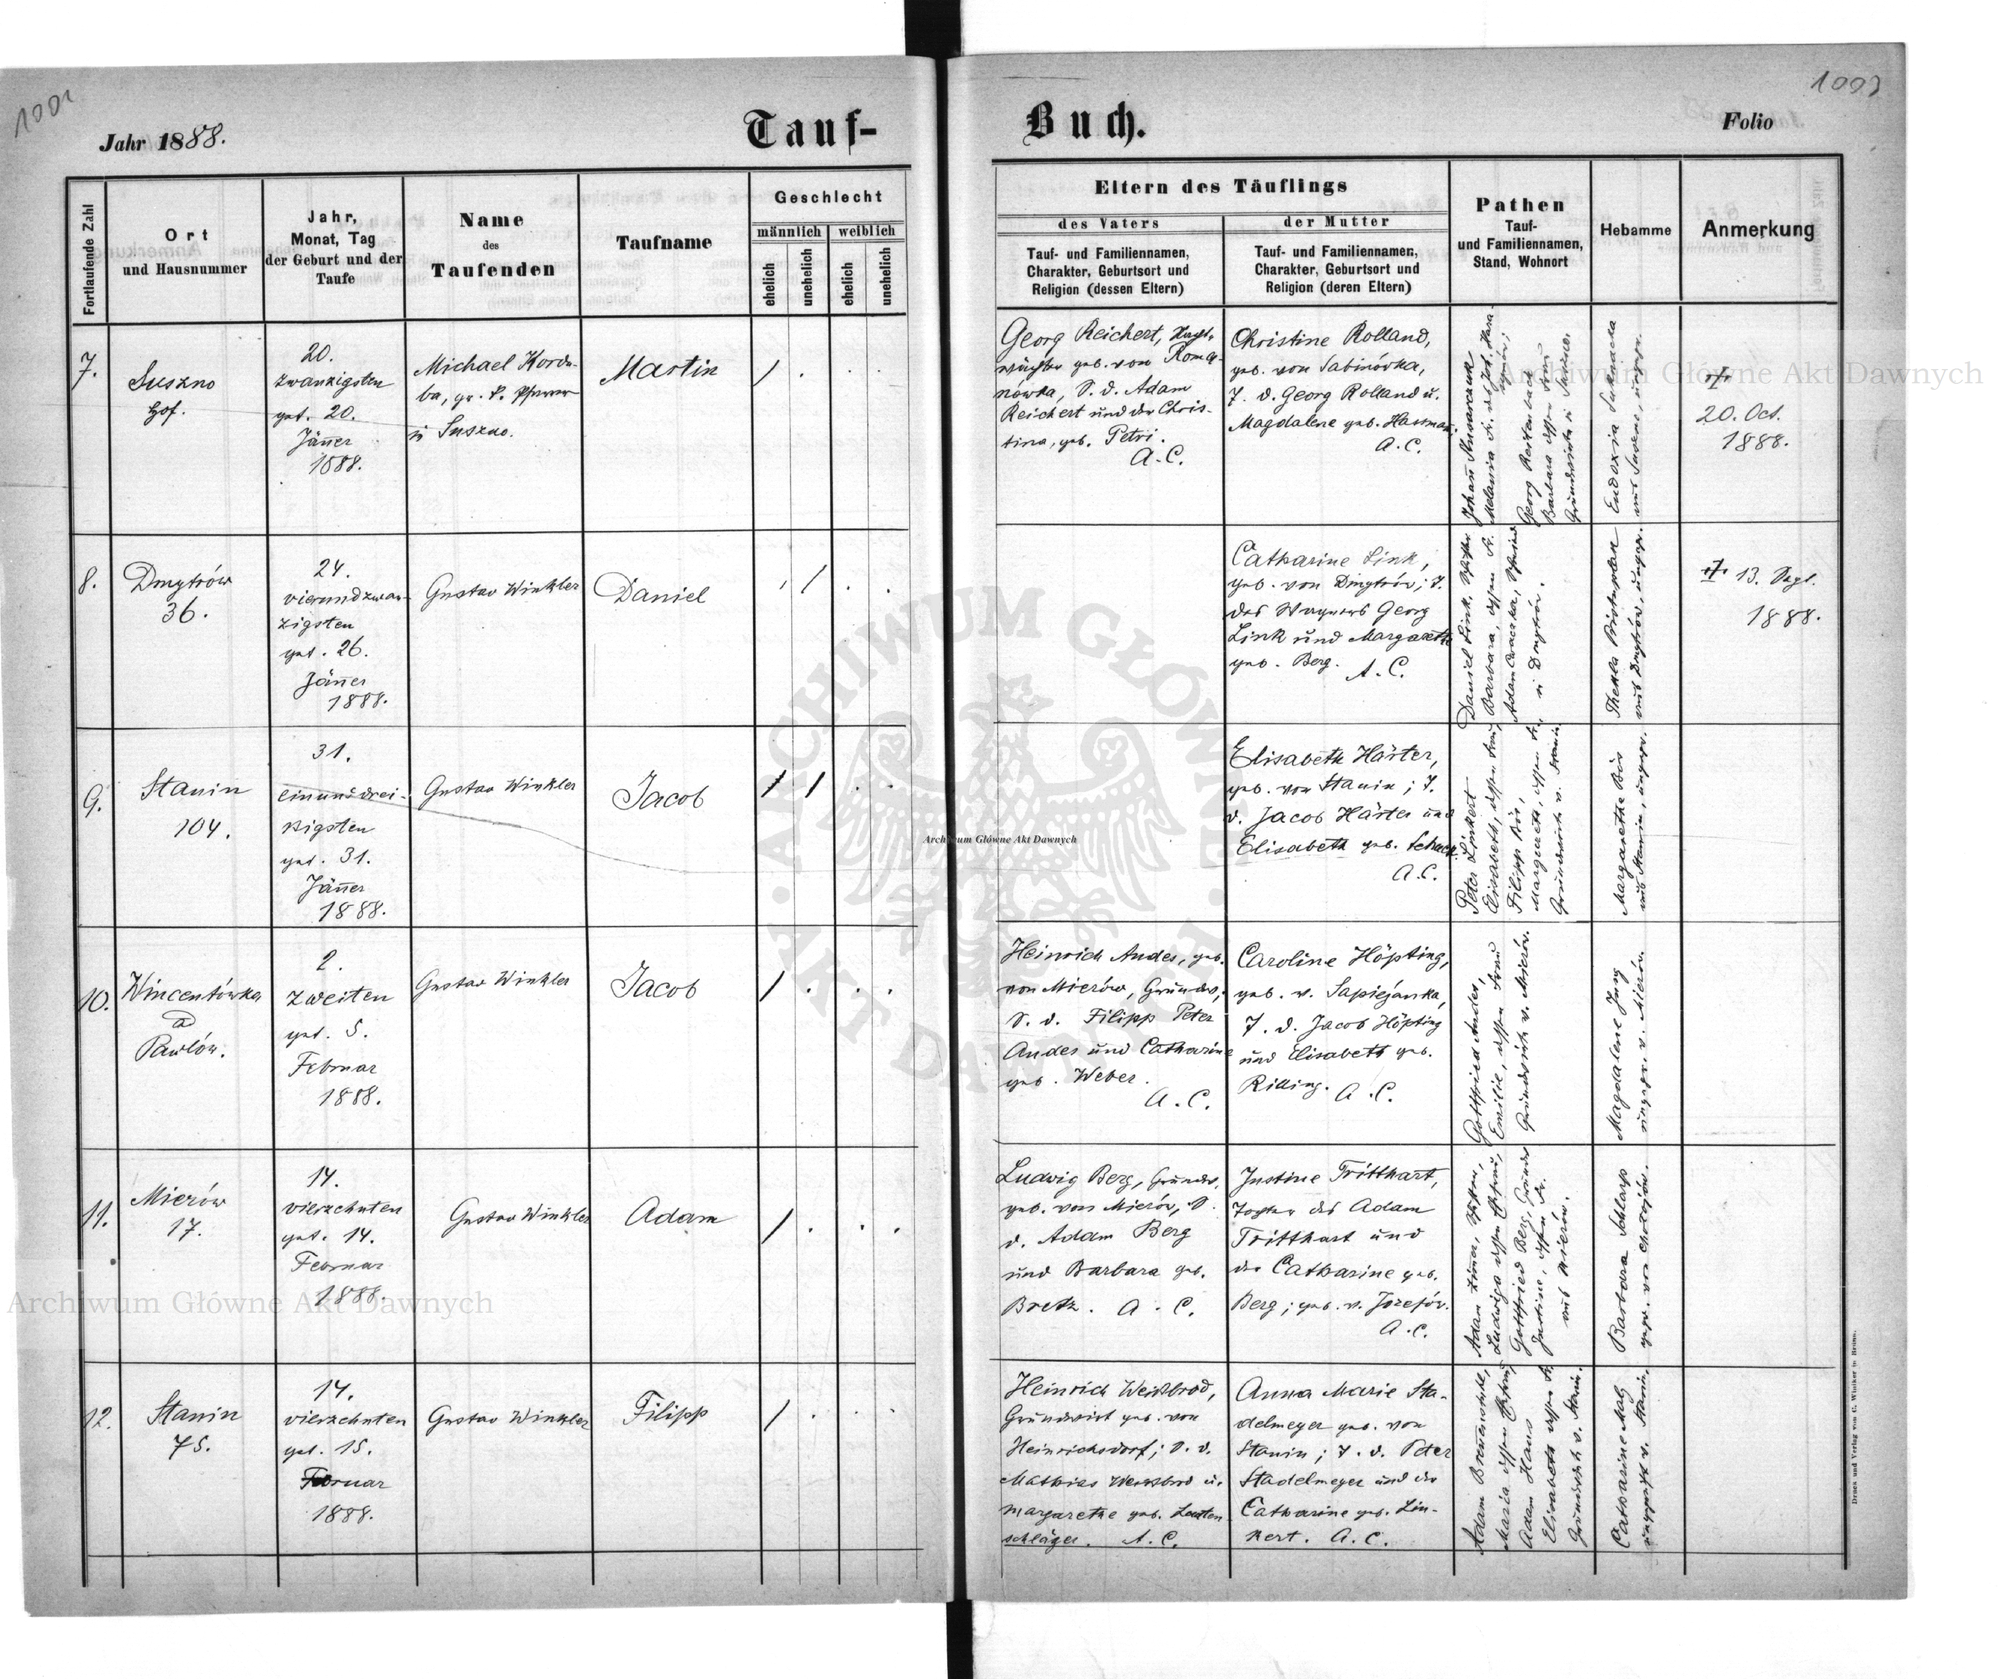 1001
1002
Jahr 1888.
Tauf-
Buch.
Folio
Fortlaufende Zahl
Ort
und Hausnummer
Jahr,
Monat, Tag
der Geburt und der
Taufe
Name
des
Taufenden
Taufname
Geschlecht
männlich
weiblich
ehelich
unehelich
ehelich
unehelich
Eltern des Täuflings
des Vaters
Tauf- und Familiennamen,
Charakter, Geburtsort und
Religion (dessen Eltern)
der Mutter
Tauf- und Familiennamen,
Charakter, Geburtsort und
Religion (deren Eltern)
Pathen
Tauf-
und Familiennamen,
Stand, Wohnort
Hebamme
Anmerkung
7.
Suszno
Hof.
20.
zwanzigsten
get. 20.
Jänner
1888.
Michael Kordu-
ba, gr. k. Pfarrer
in Suszno.
Martin
Georg Reichert,
geb. von Roma-
nówka, S. d. Adam
Reichert und der Chris-
tina, geb. Petri.
A. C.
Christine Rolland,
geb. von Sabinówka,
T. d. Georg Rolland u.
Magdalene geb. Hassman.
A. C.
Georg Reichenbach
Barbara dessen Frau
Grundwirte in Suszno.
†
20. Oct.
1888.
8.
Dmytrów
36.
24.
vierundzwan-
zigsten
get. 26.
Jänner
1888.
Gustav Winkler
Daniel
Catharine Link,
geb. von Dmytrów; T.
des Wagners Georg
Link und Margarethe
geb. Berg. A. C.
Daniel Link,
Barbara, dessen Fr.
in Dmytrów.
† 13. Sept.
1888.
9.
Stanin
104.
31.
einunddrei-
ssigsten
get. 31.
Jänner
1888.
Gustav Winkler
Jacob
Elisabeth Härter,
geb. von Stanin; T.
d. Jacob Härter und
Elisabeth geb. Schuck.
A. C.
Peter Linkert
Elisabeth, dessen Frau
Filipp Bös,
Margareth, dessen Fr.
Grundwirth v. Stanin.
Margarethe Bös
aus Stanin, ungepr.
10.
Wincentówka
ad
Pawlów.
2.
zweiten
get. 5.
Februar
1888.
Gustav Winkler
Jacob
Heinrich Andes, geb.
von Mierów, Grundw.,
S. d. Filipp Peter
Andes und Catharine
geb. Weber.
A. C.
Caroline Höpting,
geb. v. Sapiejanka,
T. d. Jacob Höpting
und Elisabeth geb.
Rilling. A. C.
Gottfried Andes,
Emilie, dessen Frau
Grundwirth v. Mierów.
Magdalene Jung
ungepr. v. Mierów
11.
Mierów
17.
14.
vierzehnten
get. 14.
Februar
1888.
Gustav Winkler
Adam
Ludwig Berg, Grundw.
geb. von Mierów, S.
d. Adam Berg
und Barbara geb.
Bretz. A. C.
Justine Tritthart,
Tochter des Adam
Tritthart und
der Catharine geb.
Berg; geb. v. Józefów.
A. C.
Adam Zimmer,
Ludwiga dessen Ehefrau,
Gottfried Berg, Grundw.
Justine, dessen Fr.
aus Mierów.
Barbara Schlarp
gepr. von Chołojów.
12.
Stanin
75.
14.
vierzehnten
get. 15.
Februar
1888.
Gustav Winkler
Filipp
Heinrich Weissbrod,
Grundwirt geb. von
Heinrichsdorf; S. d.
Mathias Weissbrod u.
Margarethe geb. Lauten
schläger. A. C.
Anna Marie Sta-
delmeyer geb. von
Stanin; T. d. Peter
Stadelmeyer und der
Catharine geb. Lin-
kert. A. C.
Maria dessen Ehefrau,
Adam Haas
Elisabeth dessen Fr.
Grundwirth v. Stanin.
Catharine Malz
ungeprüft v. Stanin.
Druck und Verlag von C. Winiker in Brünn.
Archiwum Główne Akt Dawnych
Archiwum Główne Akt Dawnych
Archiwum Główne Akt Dawnych
ARCHIWUM GŁÓWNE AKT DAWNYCH